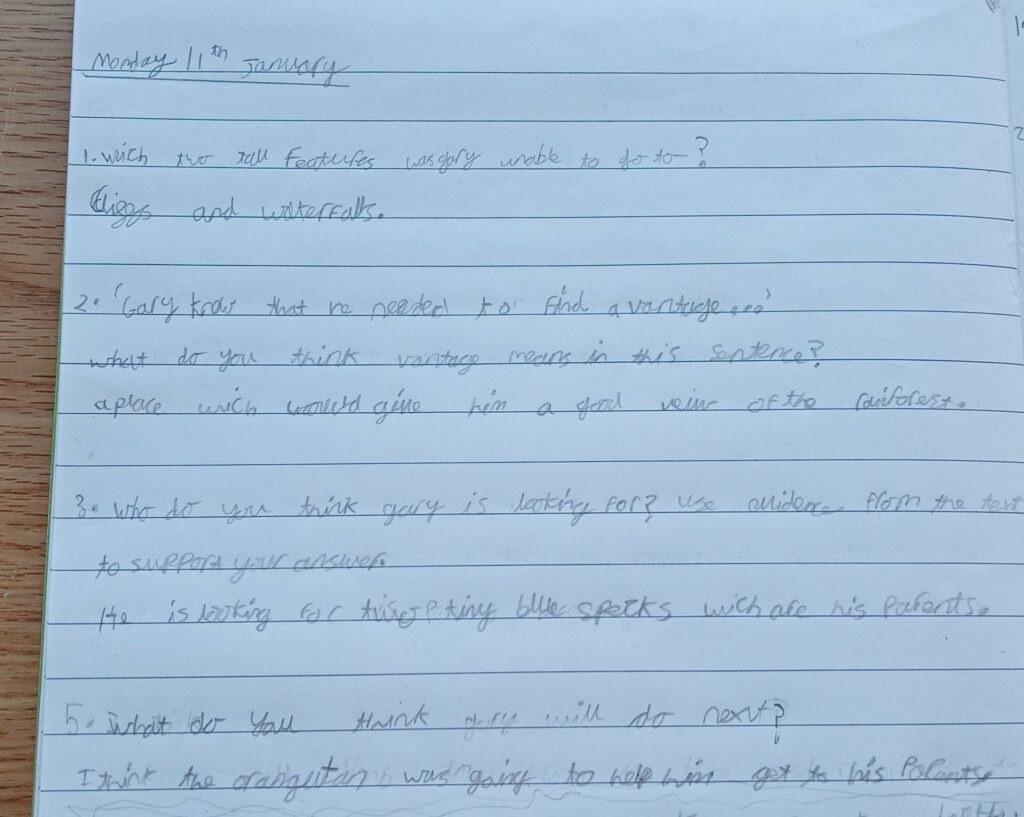 Monday 11th January
1. wich two tall features was gary unable to go to?
Cliggs and waterfalls.
2. 'Gary know that he needed to find a vantage...'
what do you think vantage means in this sentence?
a place wich would give him a good veiw of the rainforest.
3. who do you think gary is looking for? use evidence from the text
to support your answer.
He is looking for tiny blue specks wich are his Parents.
5. What do you think gary will do next?
I think the orangutan was going to help him get to his Parents.